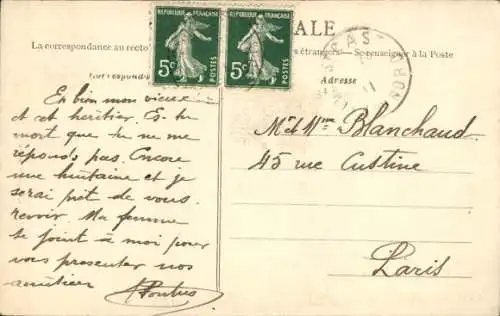 REPUBLIQUE FRANÇAISE REPUBLIQUE FRANÇAISE
5c POSTES 5c POSTES
ALE
La correspondance au recto
étrangers. Se renseigner à la Poste
Correspond
Adresse
NORD
Eh bien mon vieux
et cet héritier. Es-tu
mort que tu ne me
réponds pas. Encore
une huitaine et je
serai prêt de vous
revoir. Ma femme
se joint à moi pour
vous presenter nos
amitiés
M. et Mme Blanchaud
45 rue Custine
Paris